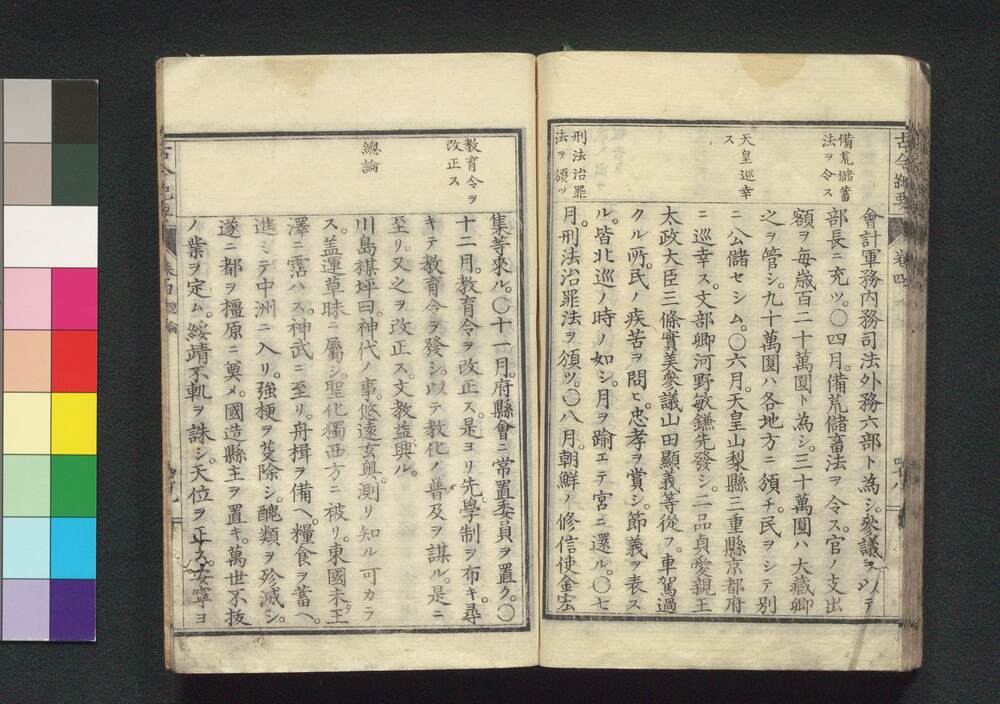 古今紀要
卷四
四十八
備荒儲蓄
法ヲ令ス
天皇巡幸
ス
刑法治罪
法ヲ頒ツ
會計軍務内務司法外務六部ト為シ。參議ヲシテ
部長ニ充ツ。〇四月。備荒儲畜法ヲ令ス。官ノ支出
額ヲ每歳百二十萬圓ト為シ。三十萬圓ハ大藏卿
之ヲ管シ。九十萬圓ハ各地方ニ頒チ。民ヲシテ別
ニ公儲セシム。〇六月。天皇山梨縣三重縣京都府
ニ巡幸ス。文部卿河野敏鎌先發シ。二品貞愛親王
太政大臣三條實美參議山田顯義等從フ。車駕過
クル所。民ノ疾苦ヲ問ヒ。忠孝ヲ賞シ。節義ヲ表ス
ル。皆北巡ノ時ノ如シ。月ヲ踰エテ宮ニ還ル。〇七
月。刑法治罪法ヲ頒ツ。〇八月。朝鮮ノ修信使金宏
教育令ヲ
改正ス
總論
集等來ル。〇十一月。府縣會ニ常置委員ヲ置ク。〇
十二月。教育令ヲ改正ス。是ヨリ先。學制ヲ布キ。尋
キテ教育令ヲ發シ。以テ教化ノ普及ヲ謀ル。是ニ
至リ。又之ヲ改正ス。文教益興ル。
川島楳坪曰。神代ノ事。悠遠玄奥。測リ知ル可カラ
ス。盖運草昧ニ屬シ。聖化獨西方ニ被リ。東國未タ王
澤ニ霑ハス。神武ニ至リ。舟楫ヲ備ヘ。糧食ヲ蓄ヘ。
進ミテ中洲ニ入リ。強梗ヲ芟除シ。醜類ヲ殄滅シ。
遂ニ都ヲ橿原ニ奠メ。國造縣主ヲ置キ。萬世不拔
ノ業ヲ定ム。綏靖不軌ヲ誅シ。天位ヲ正ス。安寧ヨ
古今紀要
卷四
總論